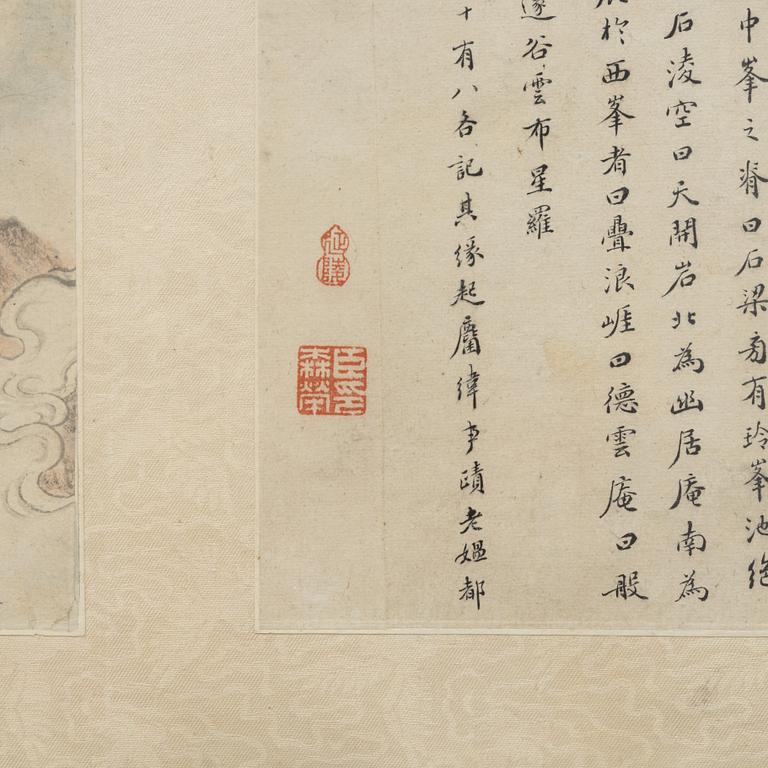 中峯之脊曰石梁旁有玲峯池絶
石淩空曰天開岩北為幽居庵南為
於西峯者曰疊浪崕曰德雲庵曰般
邃谷雲布星羅
十有八各記其緣起麕緯事蹟老媼都
延陵
臣森榮印